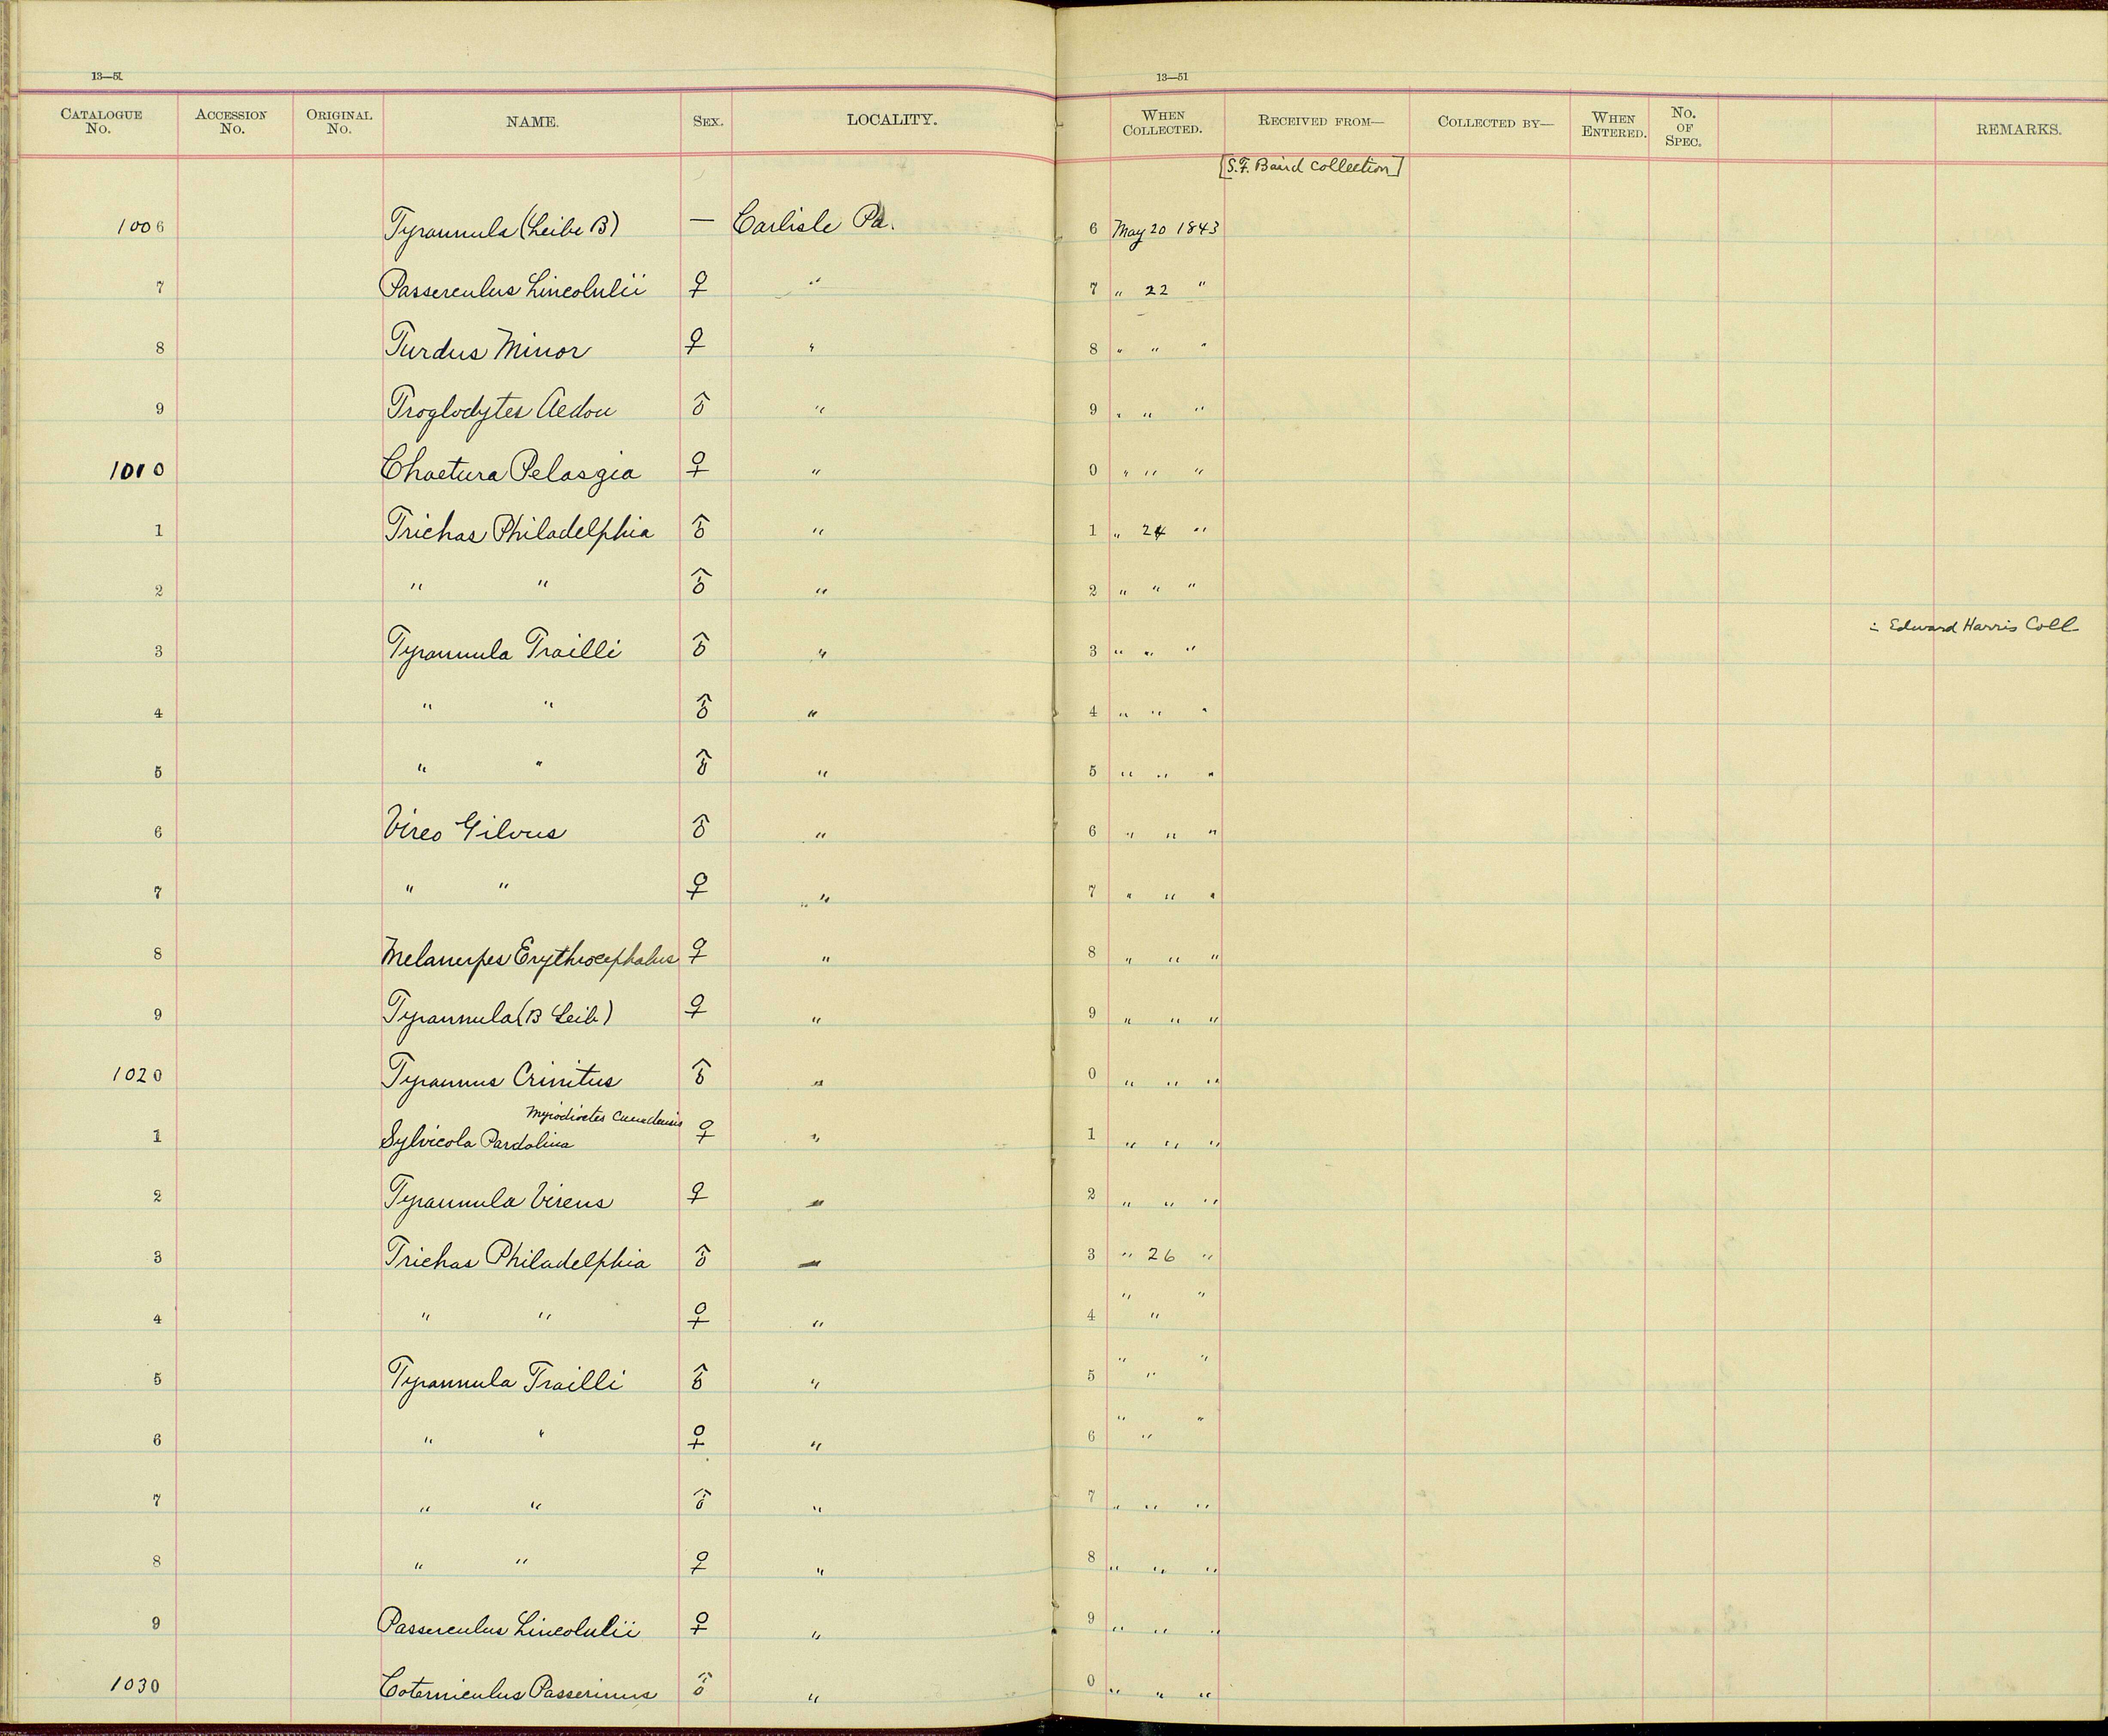 13—51 13—51
CATALOGUE No. ACCESSION No. ORIGINAL No. NAME. SEX. LOCALITY. WHEN COLLECTED. RECEIVED FROM— COLLECTED BY— WHEN ENTERED. No. OF SPEC. REMARKS.
[S.F. Baird collection]
1006 Tyrannula (Leibe B) — Carlisle Pa. 6 May 20 1843
7 Passerculus Lincolnlii ♀ " 7 " 22 "
8 Turdus Minor ♀ " 8 " " "
9 Troglodytes Aedon ♂ " 9 " " "
1010 Chaetura Pelasgia ♀ " 0 " " "
1 Trichas Philadelphia ♂ " 1 " 24 "
2 " " ♂ " 2 " " "
3 Tyrannula Trailli ♂ " 3 " " " Edward Harris Coll
4 " " ♂ " 4 " " "
5 " " ♂ " 5 " " "
6 Vireo Gilvus ♂ " 6 " " "
7 " " ♀ " 7 " " "
8 Melanerpes Erythrocephalus ♀ " 8 " " "
9 Tyrannula (B Leib) ♀ " 9 " " "
1020 Tyrannus Crinitus ♂ " 0 " " "
Myiodioctes Canadensis
1 Sylvicola Pardalina ♀ " 1 " " "
2 Tyrannula Virens ♀ " 2 " " "
3 Trichas Philadelphia ♂ " 3 " 26 "
4 " " ♀ " 4 " " "
5 Tyrannula Trailli ♂ " 5 " " "
6 " " ♀ " 6 " " "
7 " " ♂ " 7 " " "
8 " " ♀ " 8 " " "
9 Passerculus Lincolnlii ♀ " 9 " " "
1030 Coterniculus Passerinus ♂ " 0 " " "